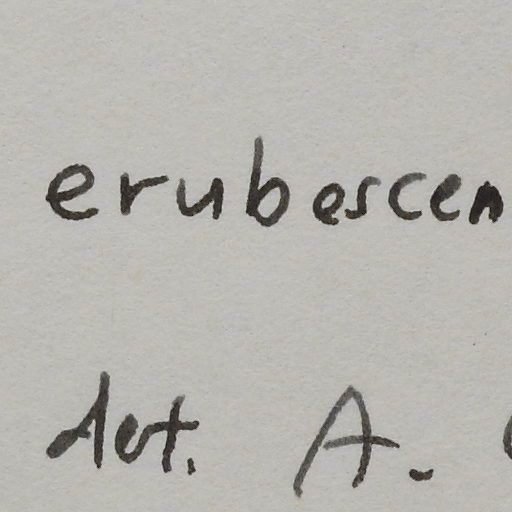 erubescen
det. A.